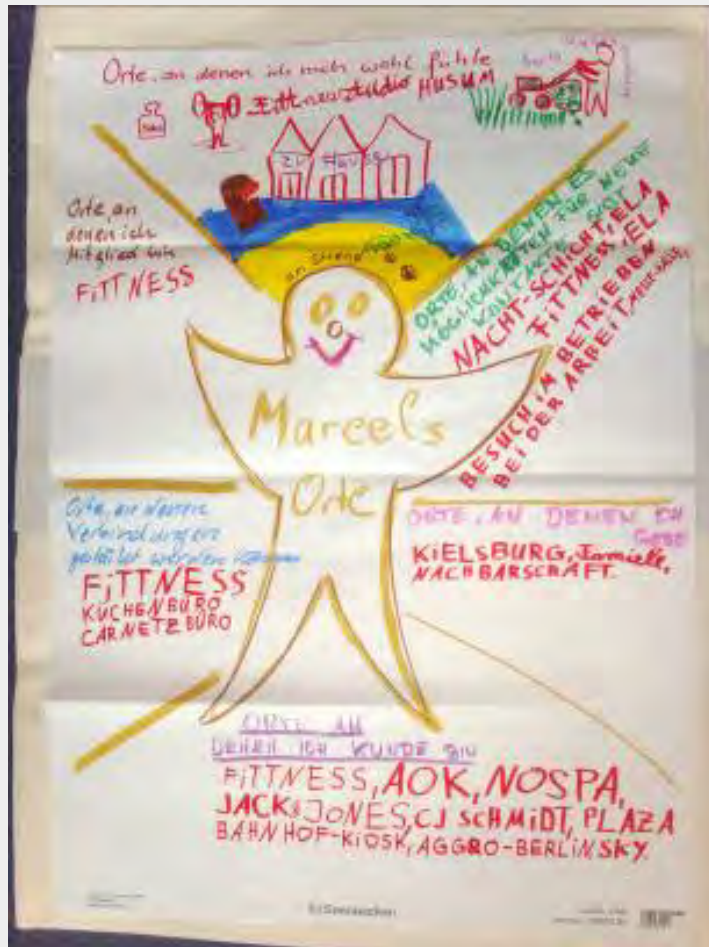 Orte, an denen ich mich wohl fühle
Fittnesstudio HUSUM
zu Hause
am Strand
Orte, an
denen ich
Mitglied bin
FiTTNESS
ORTE, AN DENEN ES
MÖGLICHKEITEN FÜR NEUE
KONTAKTE GIBT
NACHT-SCHICHT, ELA
FiTTNESS, ELA
BESUCH IM BETRIEBEN
BEI DER ARBEIT,
Marcels
Orte
Orte, an denen
Verbindungen
geknüpft werden können
FiTTNESS
KÜCHENBÜRO
CARNETZBÜRO
ORTE, AN DENEN ICH
GEBE
KiELSBURG, Familie,
NACHBARSCHAFT.
ORTE AN
DENEN ICH KUNDE BIN
FiTTNESS, AOK, NOSPA,
JACK & JONES, CJ SCHMiDT, PLAZA
BAHNHOF-KiOSK, AGGRO-BERLiN, SKY.